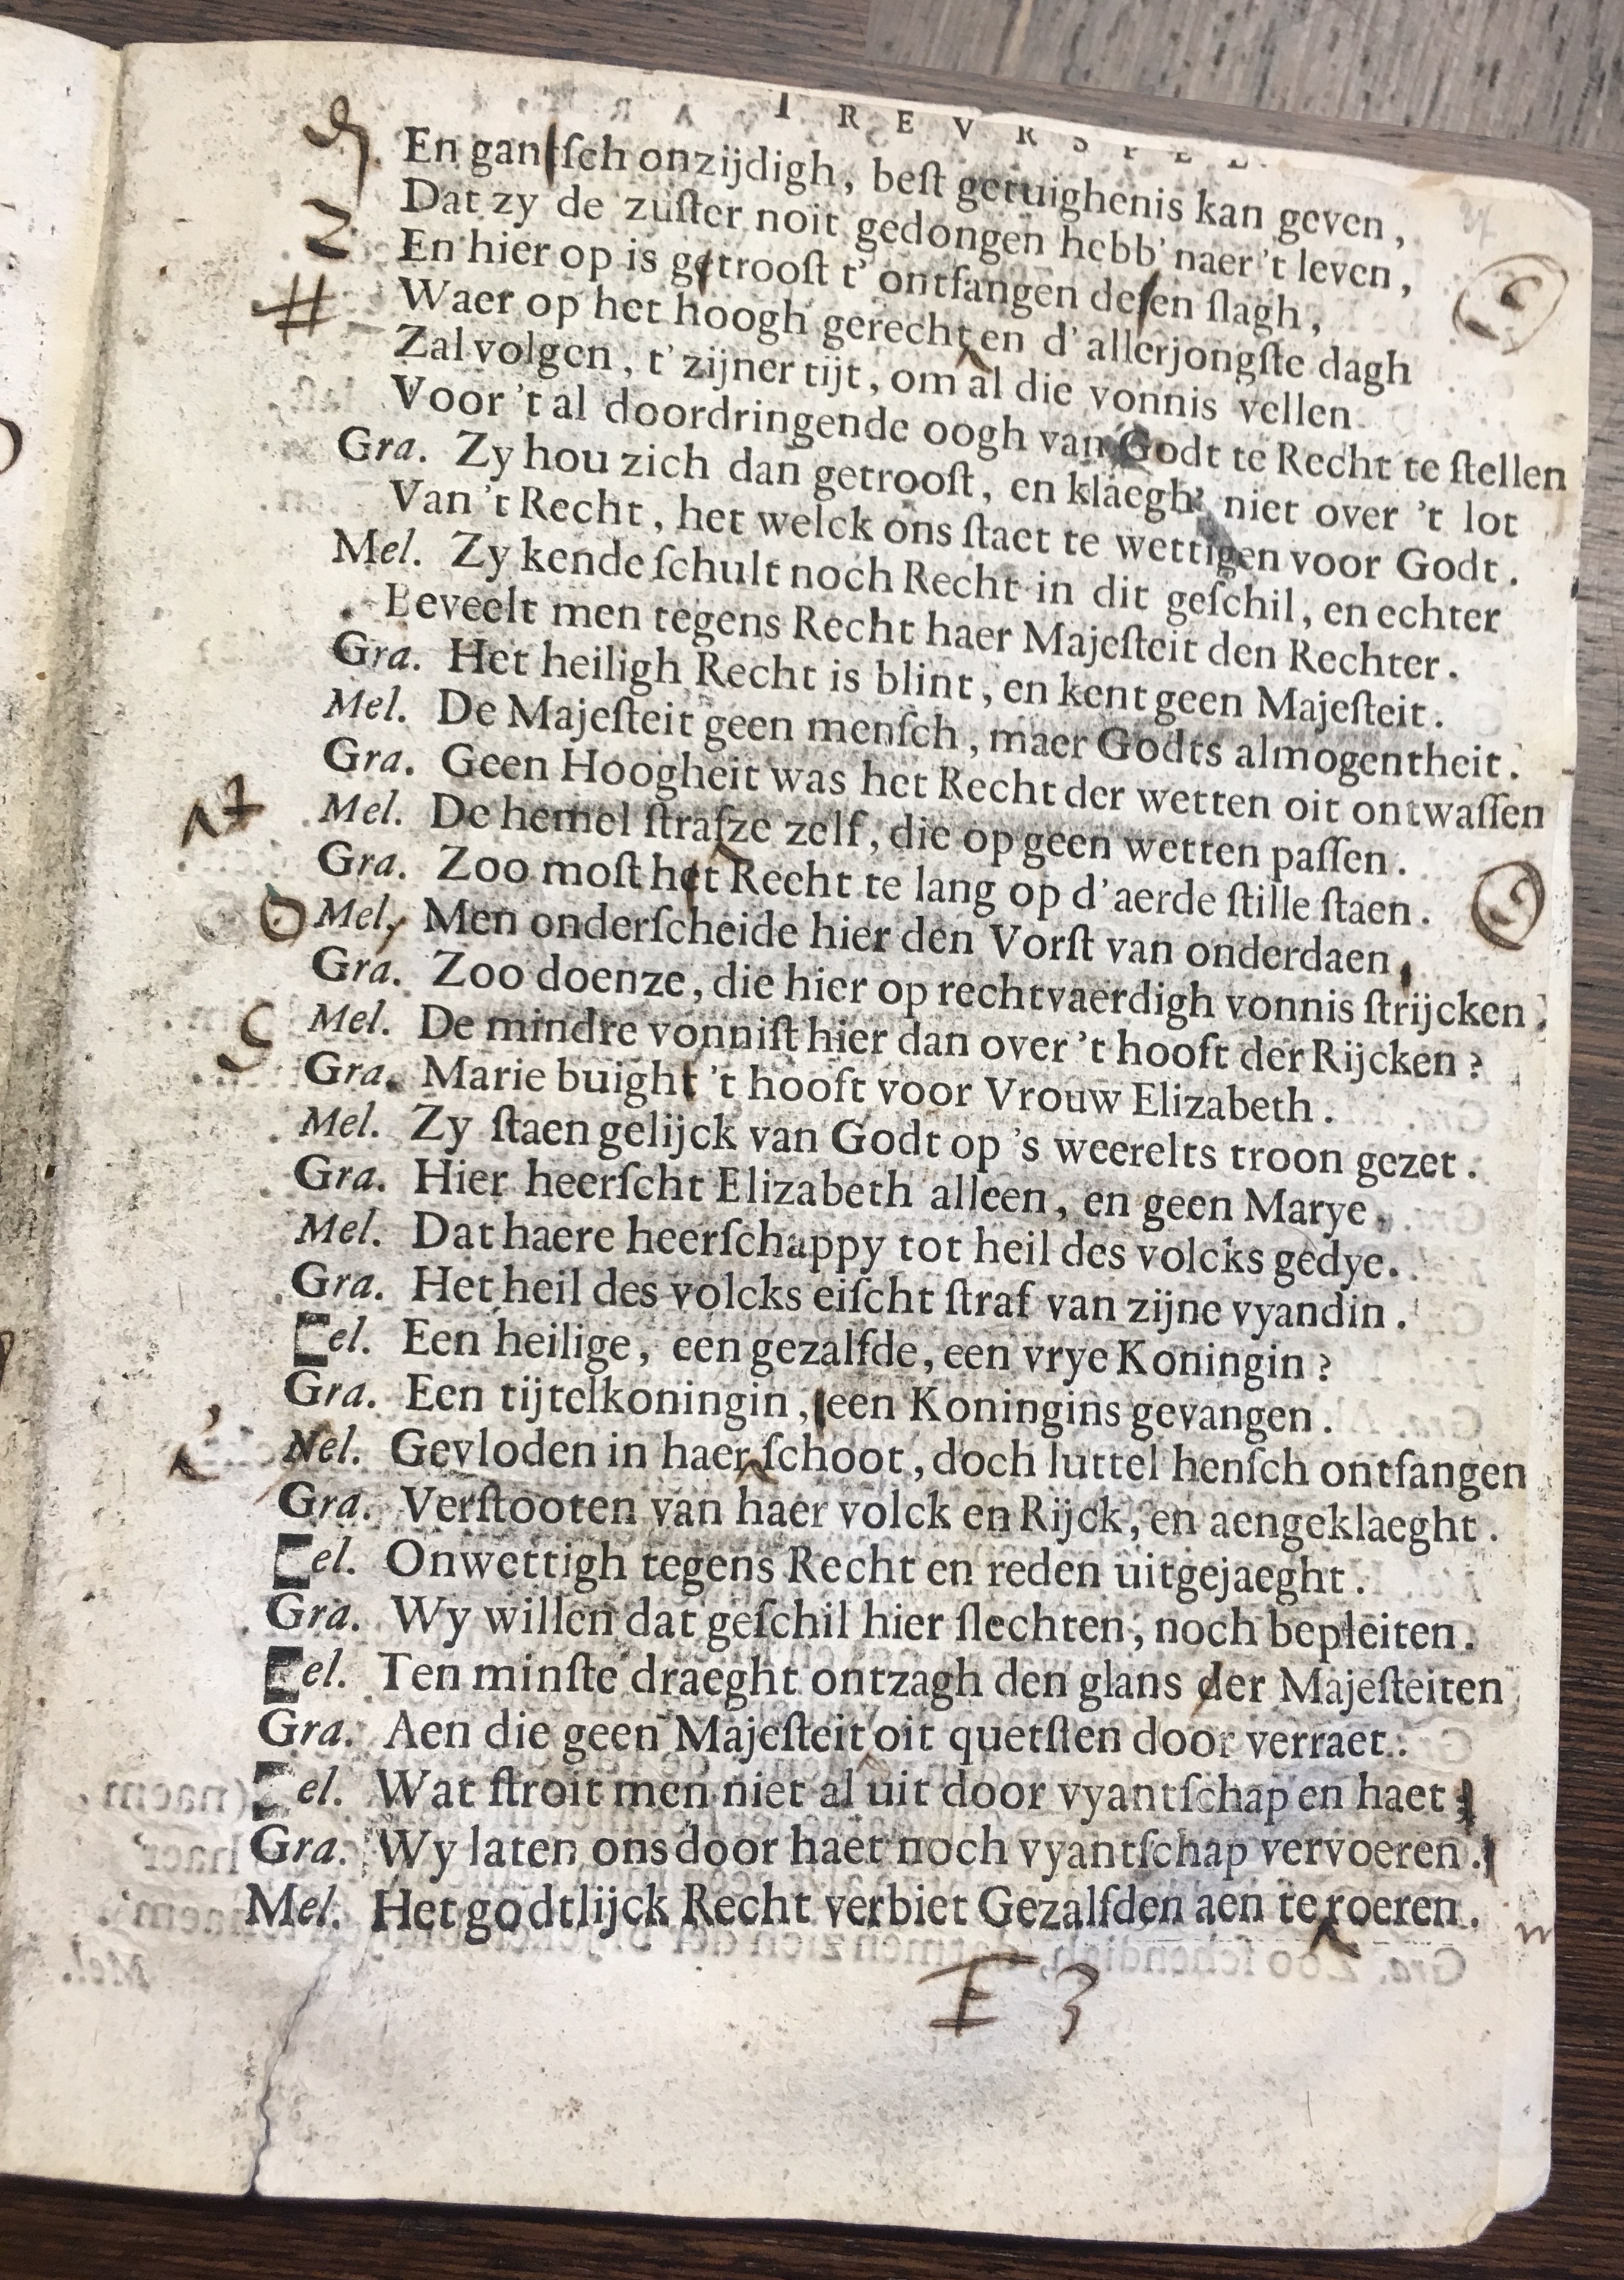 TREVRSPEL.
En gantſch onzijdigh, beſt getuighenis kan geven,
Dat zy de zuſter noit gedongen hebb' naer 't leven,
En hier op is getrooſt t' ontfangen deſen ſlagh,
Waer op het hoogh gerecht en d' allerjongſte dagh
Zal volgen, t' zijner tijt, om al die vonnis vellen
Voor 't al doordringende oogh van Godt te Recht te ſtellen
Gra. Zy hou zich dan getrooſt, en klaegh' niet over 't lot
Van 't Recht, het welck ons ſtaet te wettigen voor Godt.
Mel. Zy kende ſchult noch Recht in dit geſchil, en echter
Beveelt men tegens Recht haer Majeſteit den Rechter.
Gra. Het heiligh Recht is blint, en kent geen Majeſteit.
Mel. De Majeſteit geen menſch, maer Godts almogentheit.
Gra. Geen Hoogheit was het Recht der wetten oit ontwaſſen
Mel. De hemel ſtrafze zelf, die op geen wetten paſſen.
Gra. Zoo moſt het Recht te lang op d'aerde ſtille ſtaen.
Mel. Men onderſcheide hier den Vorſt van onderdaen,
Gra. Zoo doenze, die hier op rechtvaerdigh vonnis ſtrijcken.
Mel. De mindre vonniſt hier dan over 't hooft der Rijcken?
Gra. Marie buight 't hooft voor Vrouw Elizabeth.
Mel. Zy ſtaen gelijck van Godt op 's weerelts troon gezet.
Gra. Hier heerſcht Elizabeth alleen, en geen Marye.
Mel. Dat haere heerſchappy tot heil des volcks gedye.
Gra. Het heil des volcks eiſcht ſtraf van zijne vyandin.
el. Een heilige, een gezalfde, een vrye Koningin?
Gra. Een tijtelkoningin, een Koningins gevangen.
Nel. Gevloden in haer ſchoot, doch luttel henſch ontfangen
Gra. Verſtooten van haer volck en Rijck, en aengeklaeght.
el. Onwettigh tegens Recht en reden uitgejaeght.
Gra. Wy willen dat geſchil hier ſlechten, noch bepleiten.
el. Ten minſte draeght ontzagh den glans der Majeſteiten
Gra. Aen die geen Majeſteit oit quetſten door verraet.
el. Wat ſtroit men niet al uit door vyantſchap en haet
Gra. Wy laten ons door haet noch vyantſchap vervoeren.
Mel. Het godtlijck Recht verbiet Gezalfden aen te roeren.
F 3